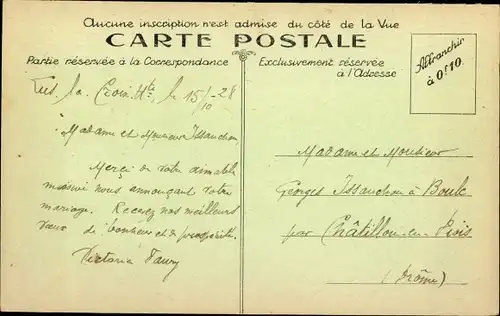 Aucune inscription n'est admise du côté de la Vue
CARTE POSTALE
Partie réservée à la Correspondance
Exclusivement réservée
à l'Adresse
Affranchir
à 0f10.
Lus la Croix Hte, le 15/10-28
Madame et Monsieur Issanchou
Merci de votre aimable
missive nous annonçant votre
mariage. Recevez nos meilleurs
vœux de bonheur et de prospérité.
Victoria Faury
Madame et Monsieur
Georges Issanchou à Boulc
par Châtillon-en-Diois
(Drôme)